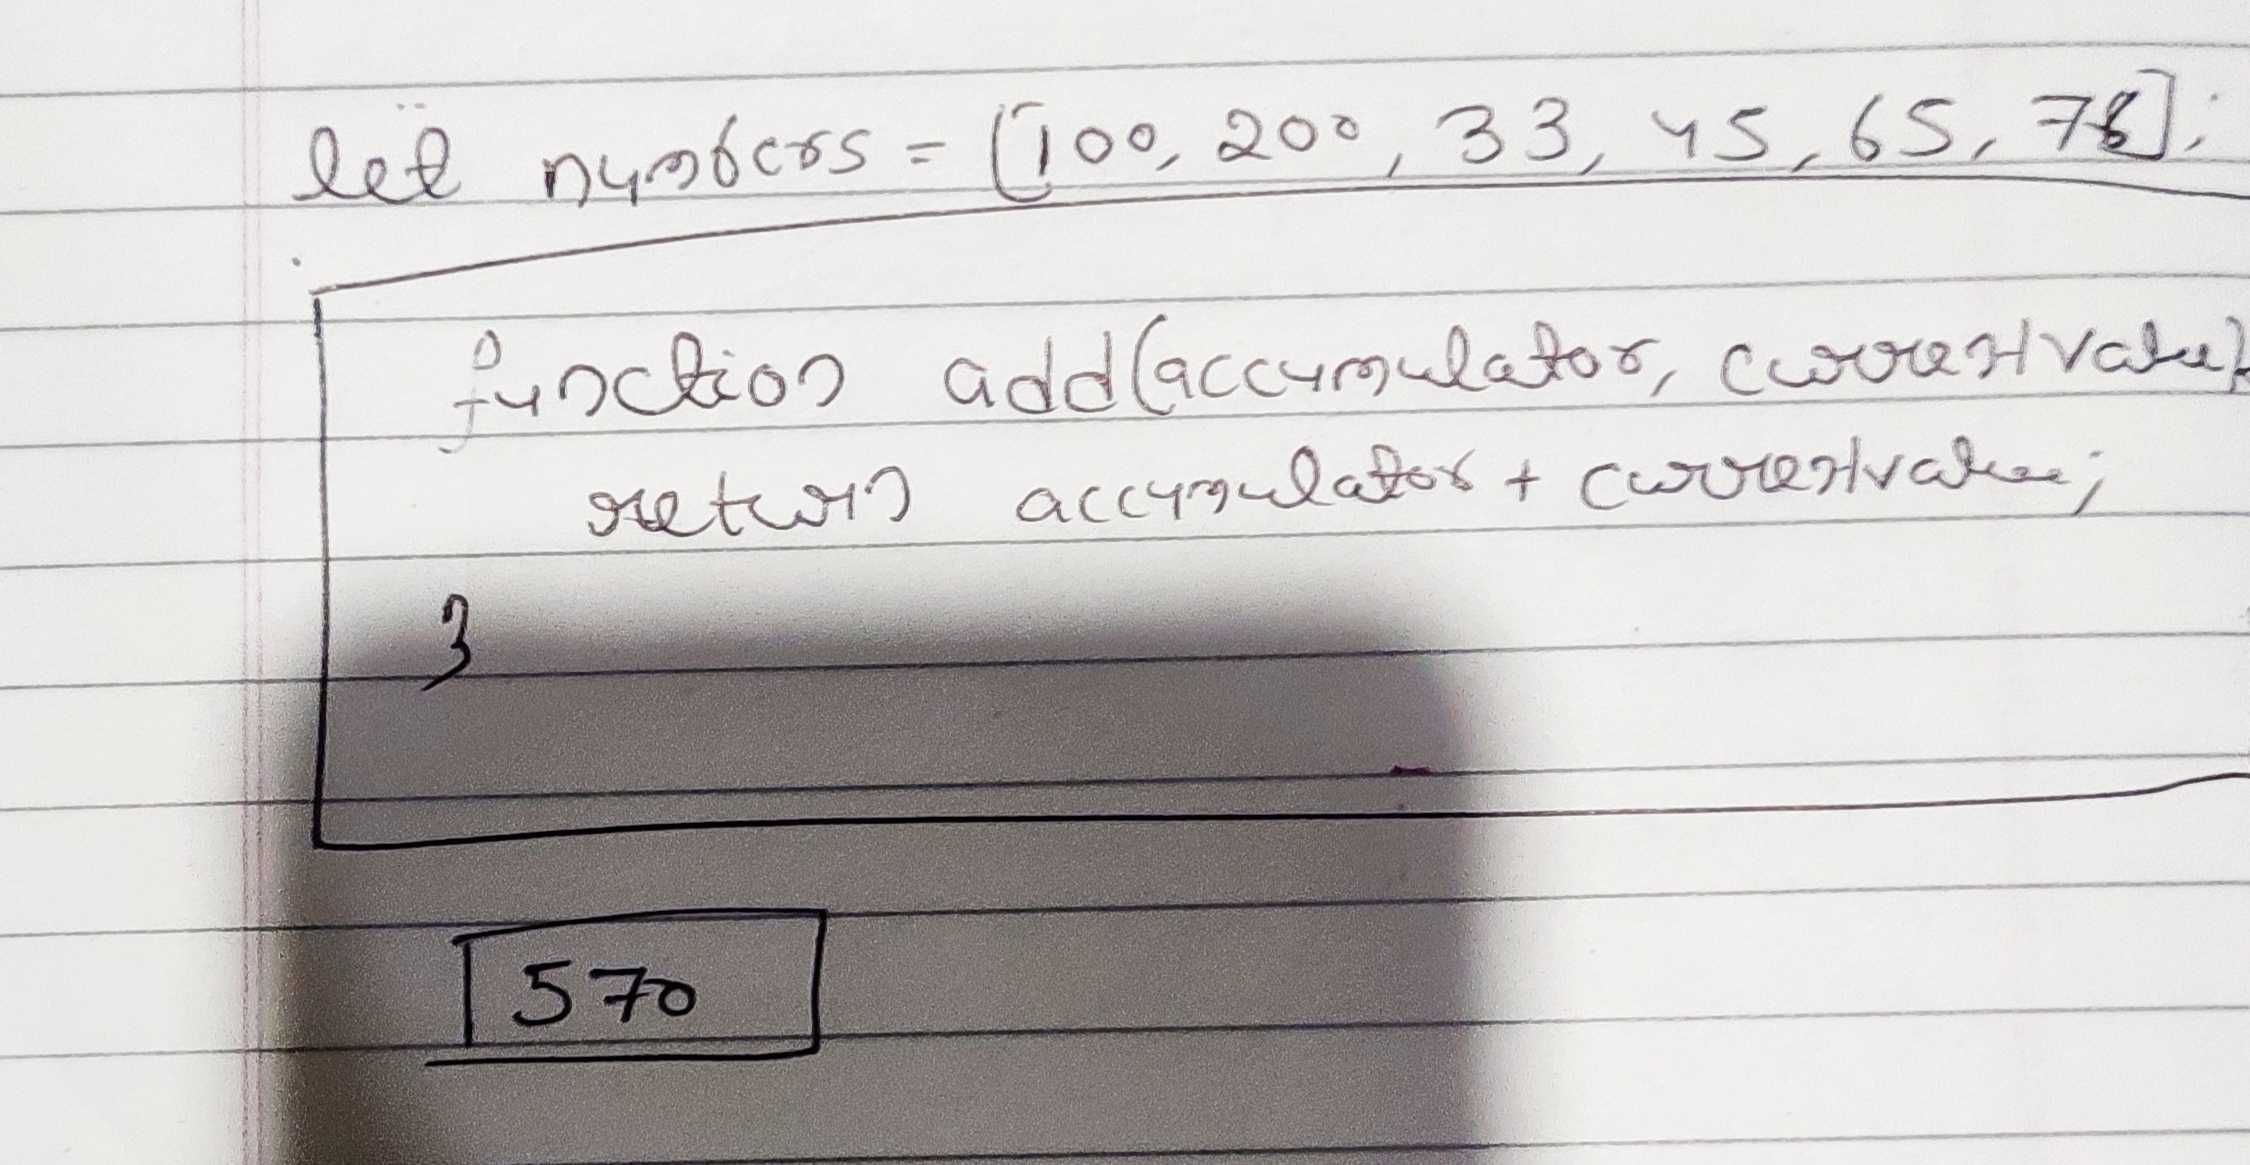 let numbers = [100, 200, 33, 45, 65, 78];
function add(accumulator, currentvalue){
return accumulator + currentvalue;
}
570